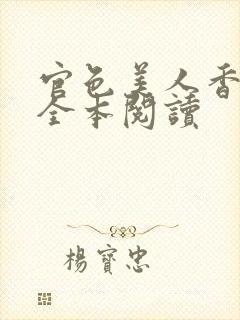 官色美人香
全本閱讀
楊寳忠